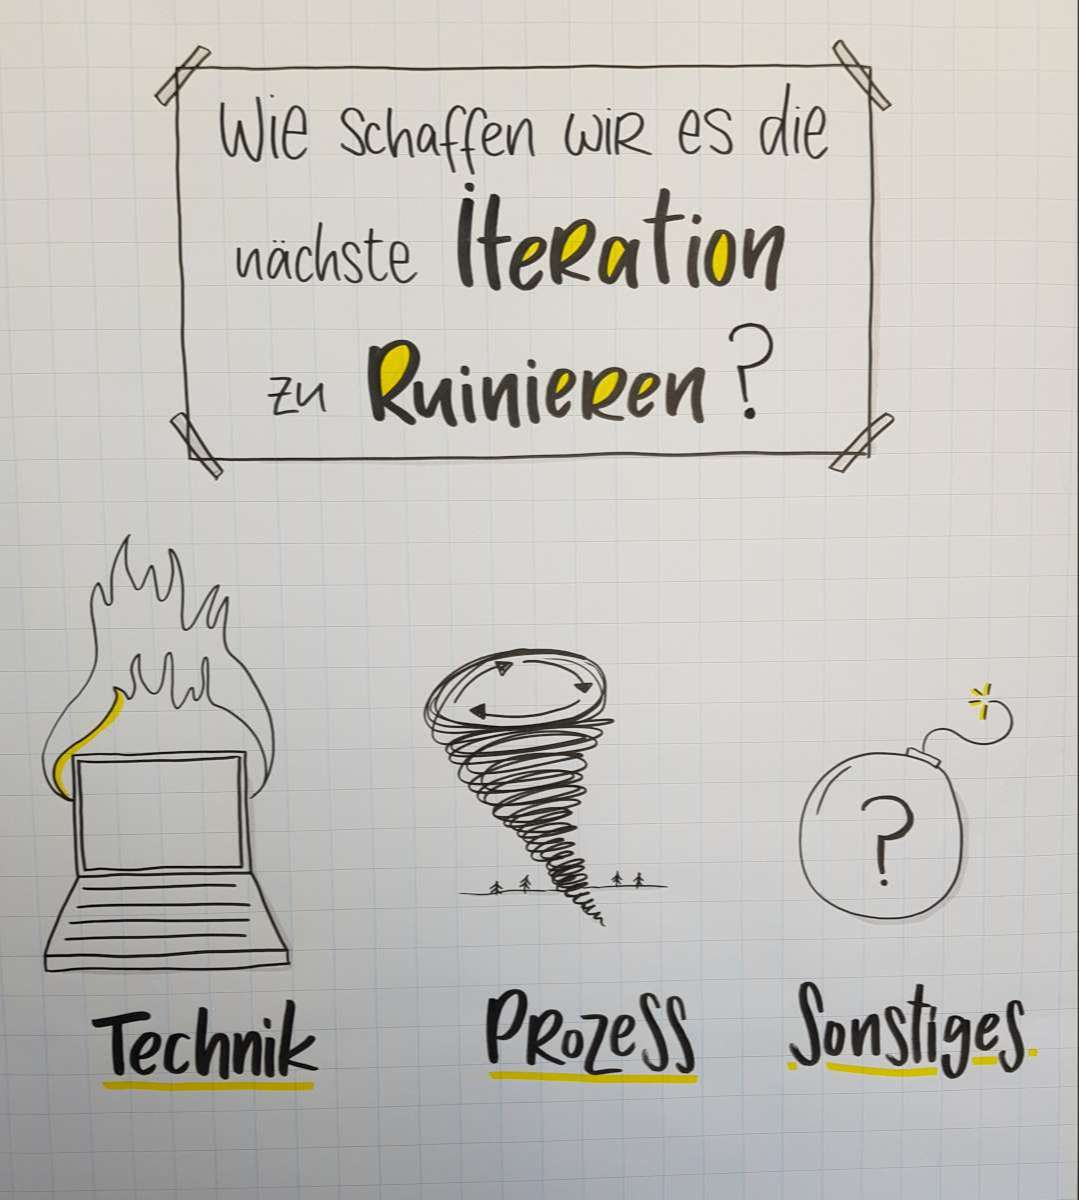 Wie schaffen wir es die
nächste Iteration
zu Ruinieren?
?
Technik
Prozess
Sonstiges